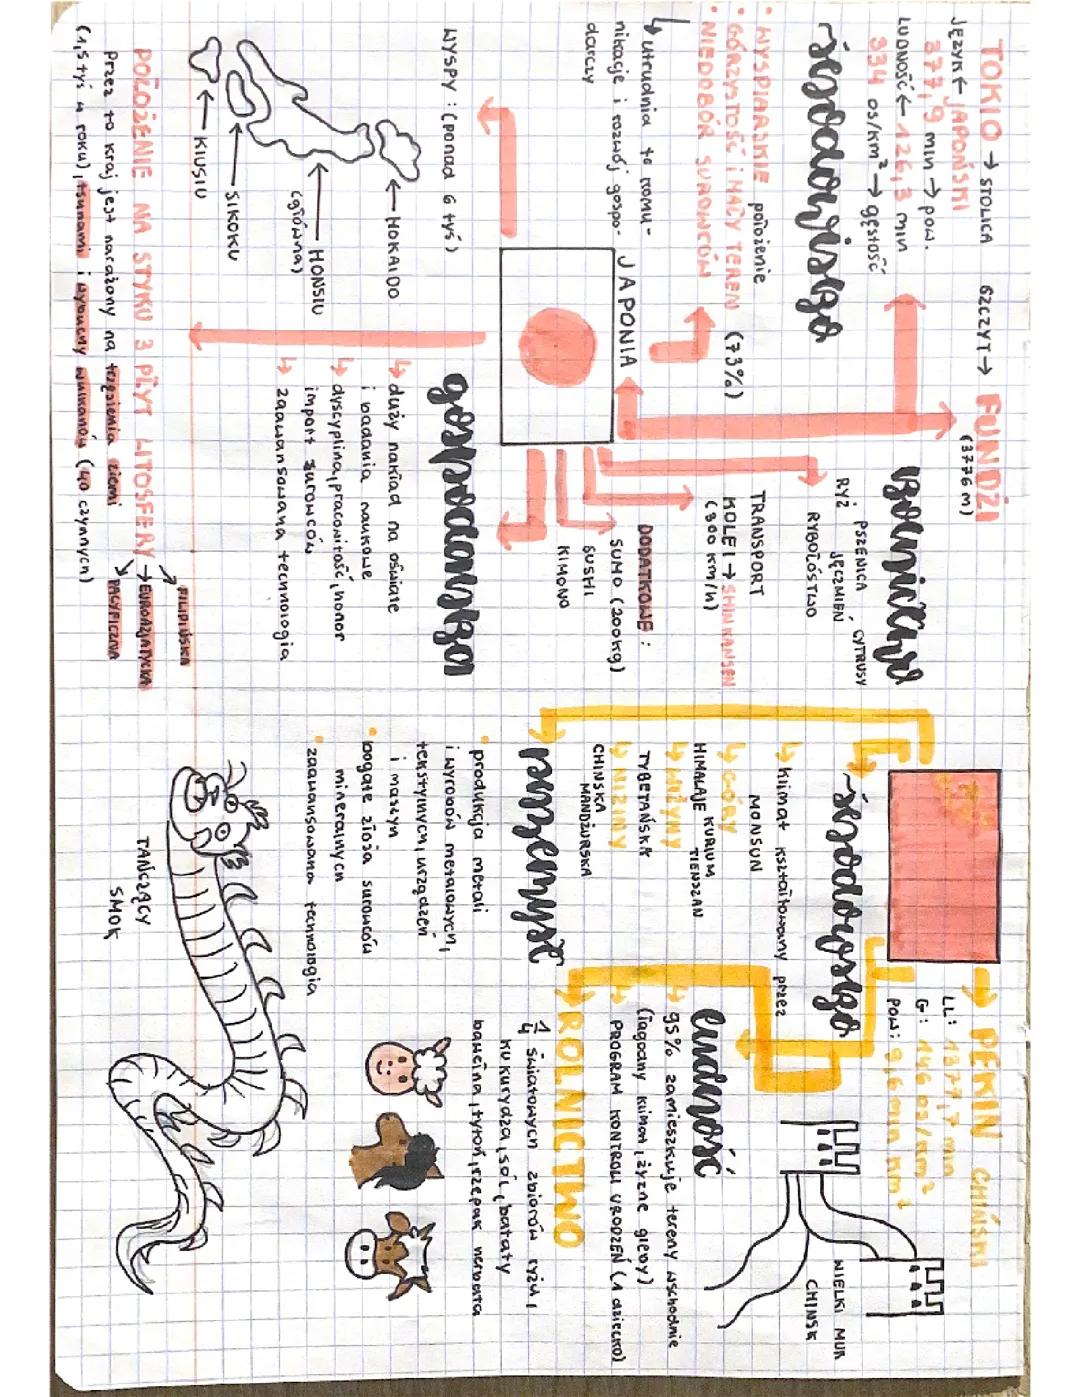 TOKIO → STOLICA
JĘZYK ← JAPOŃSKI
377,9 mln → pow.
LUDNOŚĆ ← 126,3 mln
334 os/km² → gęstość
SZCZYT → FUNDŻI
(3776 m)
środowisko
• WYSPIARSKIE położenie
• GÓRZYSTOŚĆ i MAŁY TEREN (73%)
• NIEDOBÓR SUROWCÓW
↳ utrudnia to komu-
nikację i rozwój gospo-
darczy
rolnictwo
RYŻ PSZENICA
JĘCZMIEŃ CYTRUSY
RYBOŁÓSTWO
TRANSPORT
KOLEI → SHINKANSEN
(300 km/h)
DODATKOWE:
SUMO (200kg)
SUSHI
KIMONO
JAPONIA
WYSPY: (ponad 6 tyś)
HOKAIDO
HONSIU
(główna)
SIKOKU
KIUSIU
gospodarka
↳ duży nakład na oświatę
i badania naukowe
↳ dyscyplina, pracowitość, honor
import surowców
↳ zaawansowana technologia
POŁOŻENIE NA STYKU 3 PŁYT LITOSFERY
FILIPIŃSKA
EUROAZJATYCKA
PACYFICZNA
Przez to kraj jest narażony na trzęsienia ziemi
(1,5 tyś w roku), tsunami i wybuchy wulkanów (40 czynnych)
PEKIN CHIŃSKI
LL: 1377,7 mln
G: 146 os/km²
POW: 9,6 mln km²
środowisko
↳ klimat kształtowany przez
MONSUN
↳ GÓRY
HIMALAJE KUNLUN
TIENSZAN
↳ WYŻYNY
TYBETAŃSKA
↳ NIZINY
CHIŃSKA
MANDŻURSKA
WIELKI MUR
CHIŃSK
ludność
↳ 95% zamieszkuje tereny wschodnie
(łagodny klimat, żyzne gleby)
↳ PROGRAM KONTROLI URODZEŃ (1 dziecko)
przemysł
• produkcja metali
i wyrobów metalowych,
tekstylnych, urządzeń
i maszyn
• bogate złoża surowców
mineralnych
• zaawansowana technologia
ROLNICTWO
1/4 światowych zbiorów ryżu,
kukurydza, soi, bataty
bawełna, tytoń, rzepak herbata
TAŃCZĄCY
SMOK